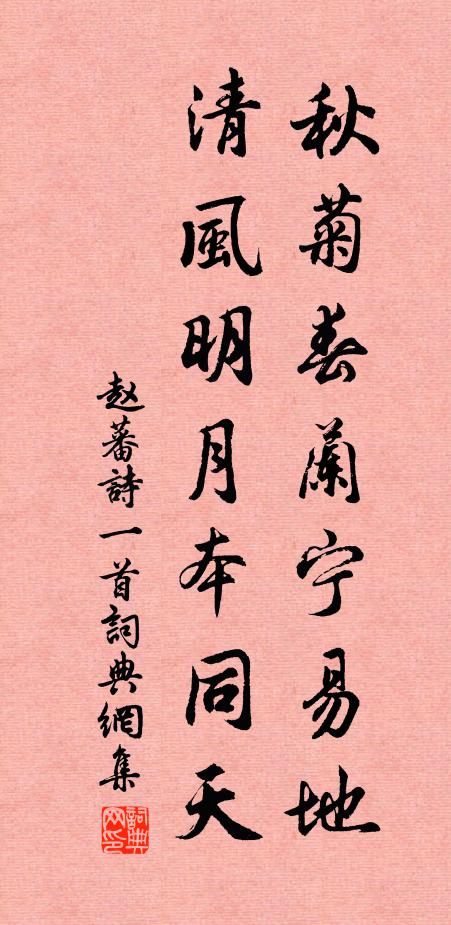 秋菊春蘭宁易地
清風明月本同天
赵蕃詩一首詞典網集
詞典网印